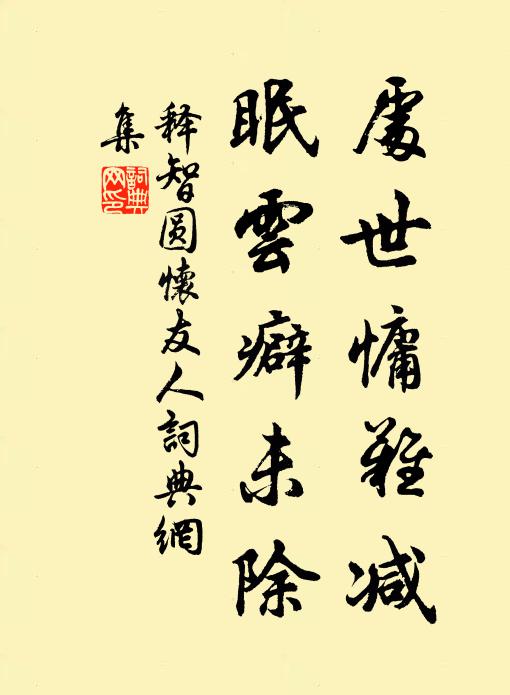 處世慵難減
眠雲癖未除
释智圆懷友人詞典網
集
詞典网印